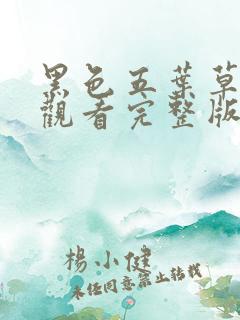 黑色五葉草
觀看完整版
楊小健
未經同意禁止轉載